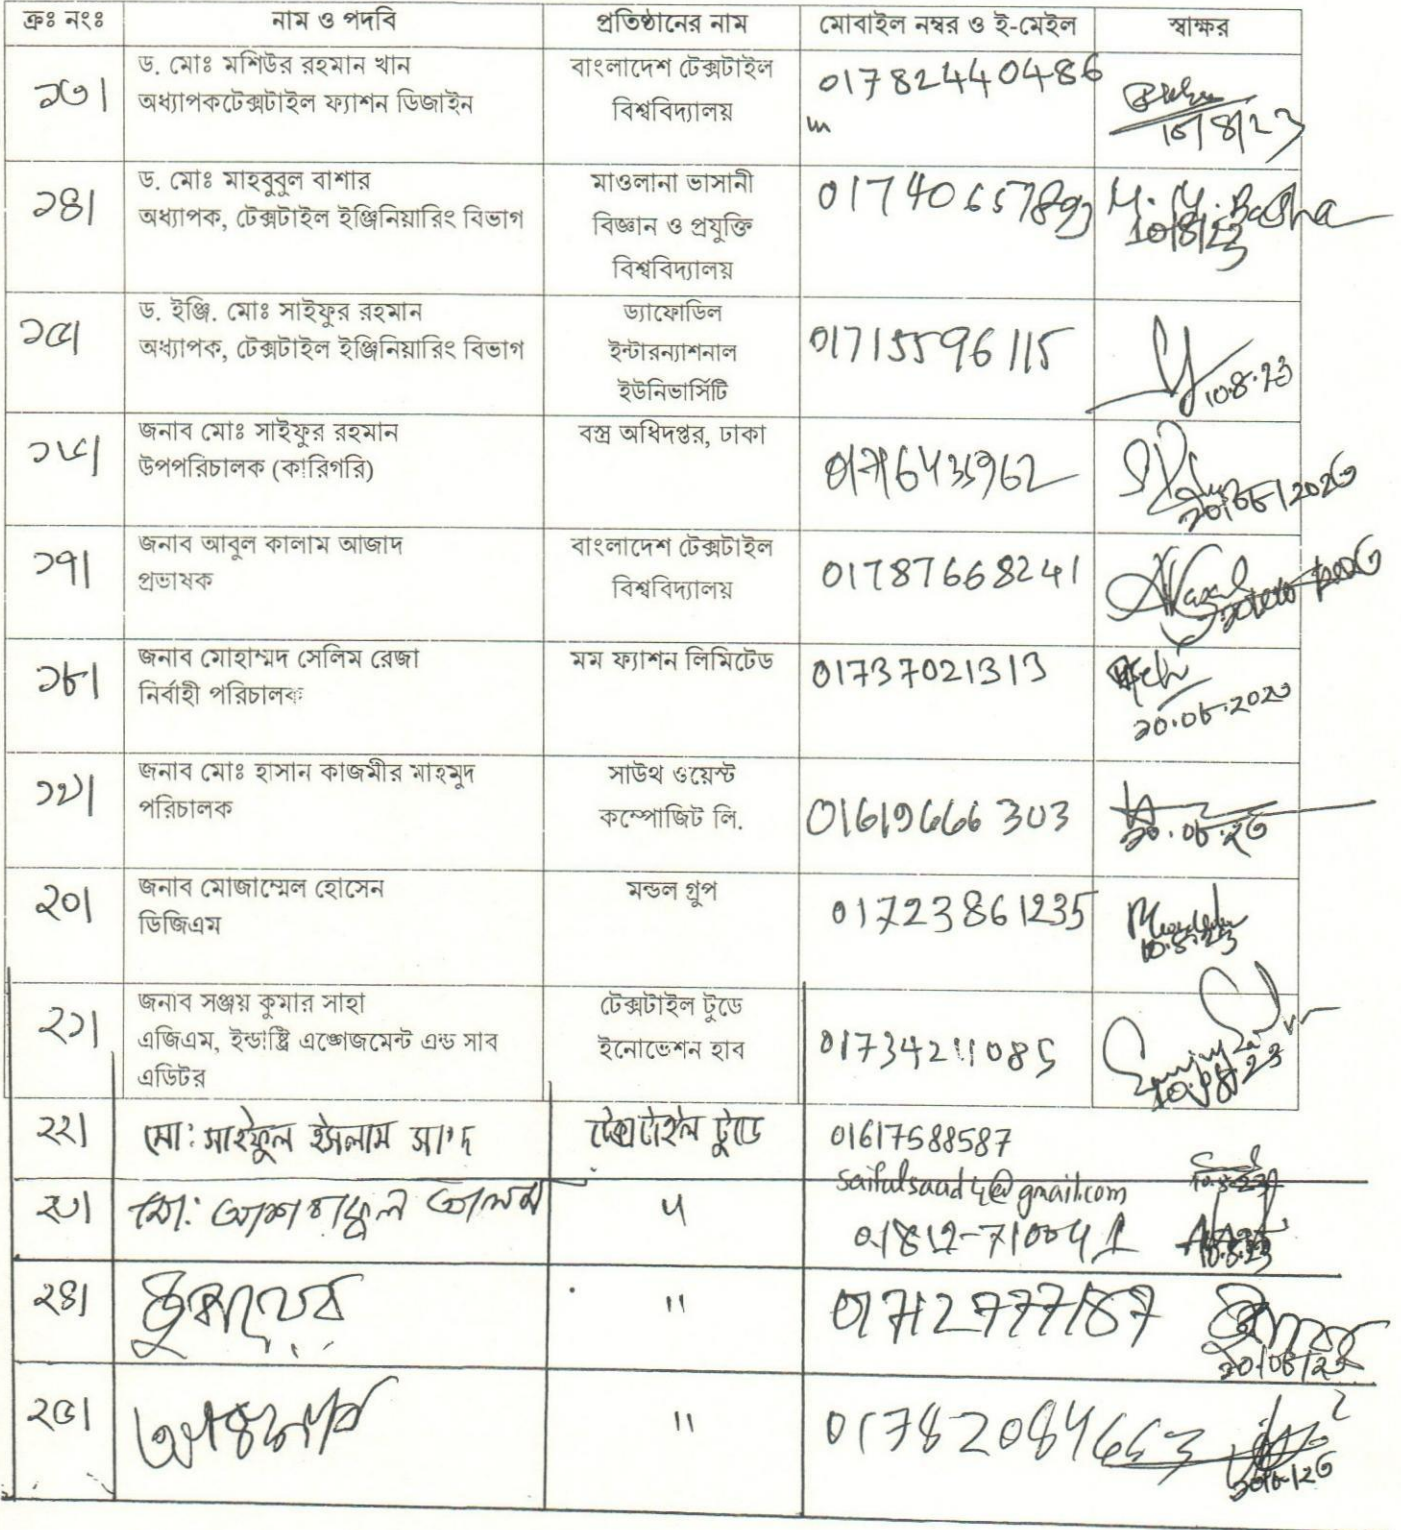 ক্রঃ নংঃ নাম ও পদবি প্রতিষ্ঠানের নাম মোবাইল নম্বর ও ই-মেইল স্বাক্ষর
১৩।
ড. মোঃ মশিউর রহমান খান
অধ্যাপকটেক্সটাইল ফ্যাশন ডিজাইন
বাংলাদেশ টেক্সটাইল
বিশ্ববিদ্যালয়
01782440486
10/8/23
১৪।
ড. মোঃ মাহবুবুল বাশার
অধ্যাপক, টেক্সটাইল ইঞ্জিনিয়ারিং বিভাগ
মাওলানা ভাসানী
বিজ্ঞান ও প্রযুক্তি
বিশ্ববিদ্যালয়
M. M. Basha
10/8/23
১৫।
ড. ইঞ্জি. মোঃ সাইফুর রহমান
অধ্যাপক, টেক্সটাইল ইঞ্জিনিয়ারিং বিভাগ
ড্যাফোডিল
ইন্টারন্যাশনাল
ইউনিভার্সিটি
01715596115
10.8.23
১৬।
জনাব মোঃ সাইফুর রহমান
উপপরিচালক (কারিগরি)
বস্ত্র অধিদপ্তর, ঢাকা
01716435962
১০/০৮/২০২৩
১৭।
জনাব আবুল কালাম আজাদ
প্রভাষক
বাংলাদেশ টেক্সটাইল
বিশ্ববিদ্যালয়
01787668241
১৮।
জনাব মোহাম্মদ সেলিম রেজা
নির্বাহী পরিচালক
মম ফ্যাশন লিমিটেড
01737021313
১০.০৮.২০২৩
১৯।
জনাব মোঃ হাসান কাজমীর মাহমুদ
পরিচালক
সাউথ ওয়েস্ট
কম্পোজিট লি.
01619666303
১০.০৮.২৩
২০।
জনাব মোজাম্মেল হোসেন
ডিজিএম
মন্ডল গ্রুপ
01723861235
10.8.23
২১।
জনাব সঞ্জয় কুমার সাহা
এজিএম, ইন্ডাষ্ট্রি এঙ্গেজমেন্ট এন্ড সাব
এডিটর
টেক্সটাইল টুডে
ইনোভেশন হাব
01734211085
10.08.23
২২।
মো: সাইফুল ইসলাম সা'দ
টেক্সটাইল টুডে
01617588587
saifulsaad4@gmail.com
10.8.23
২৩।
মো: আশরাফুল আলম
"
01812-710041
10.8.23
২৪।
"
01712777187
১০/০৮/২৩
২৫।
"